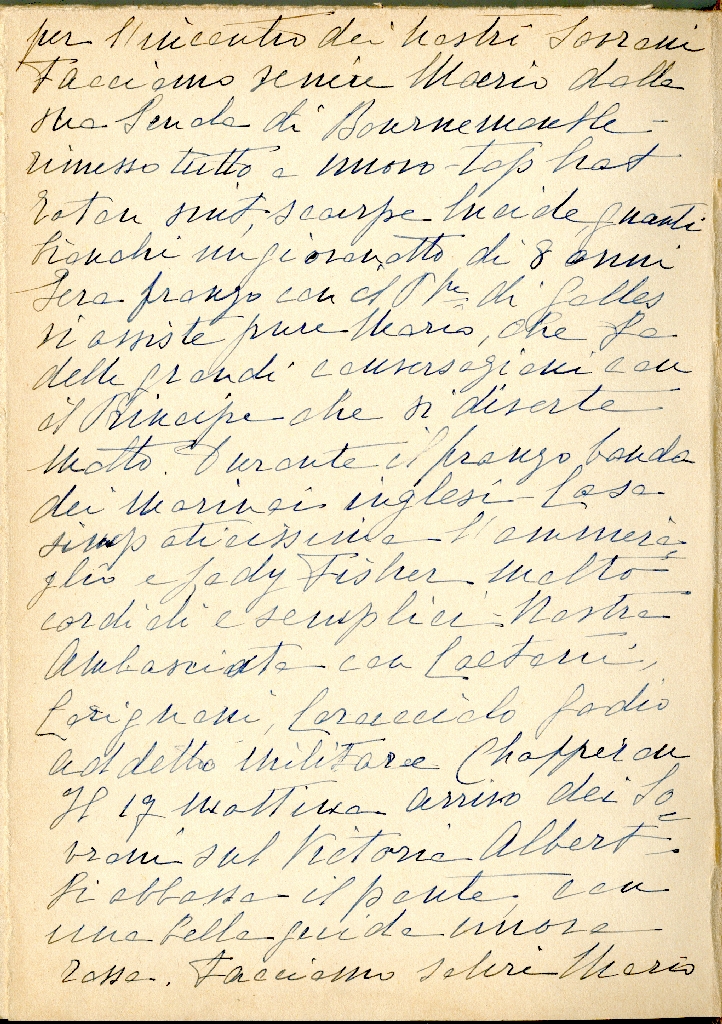 per l'incontro dei nostri Sovrani
Facciamo venire Mario dalla
sua Scuola di Bournemouth -
rimesso tutto a nuovo - top hat
Eaton suit, scarpe lucide, guanti
bianchi un giovanotto di 8 anni
Sera pranzo con il P.pe di Galles
vi assiste pure Mario, che fa
delle grandi conversazioni con
il Principe che si diverte
molto. Durante il pranzo banda
dei marinai inglesi - Casa
simpaticissima l'ammira-
glio e Lady Fisher molto
cordiali e semplici - Nostra
Ambasciata con Caetani,
Carignani, Caracciolo Gadio
addetto militare Chapperon
Il 17 mattina arrivo dei So-
vrani sul Victoria Albert -
Si abbassa il ponte, con
una bella guida nuova
rossa. Facciamo salire Mario